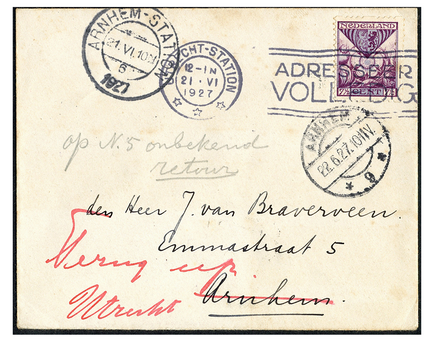 ARNHEM-STATION
21.VI.10
6
1927
CHT-STATION
12-IN
21.VI
1927
NEDERLAND
7½ CENT 7½
ADRESSEER
VOLLEDIG
ARNHEM
22.6.27.10IIV.
9
op N. 5 onbekend
retour
den Heer J. van Braverveen.
Emmastraat 5
Arnhem.
Terug
Utrecht